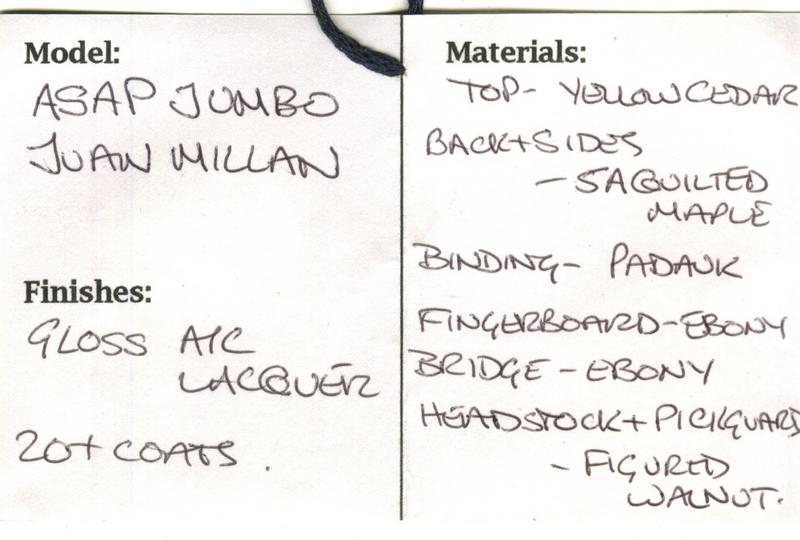 Model:
ASAP JUMBO
JUAN MILLAN
Finishes:
GLOSS A/C
LACQUER
20+ COATS.
Materials:
TOP- YELLOW CEDAR
BACK+SIDES
- 5A QUILTED
MAPLE
BINDING- PADAUK
FINGERBOARD-EBONY
BRIDGE - EBONY
HEADSTOCK+ PICKGUARD
- FIGURED
WALNUT.